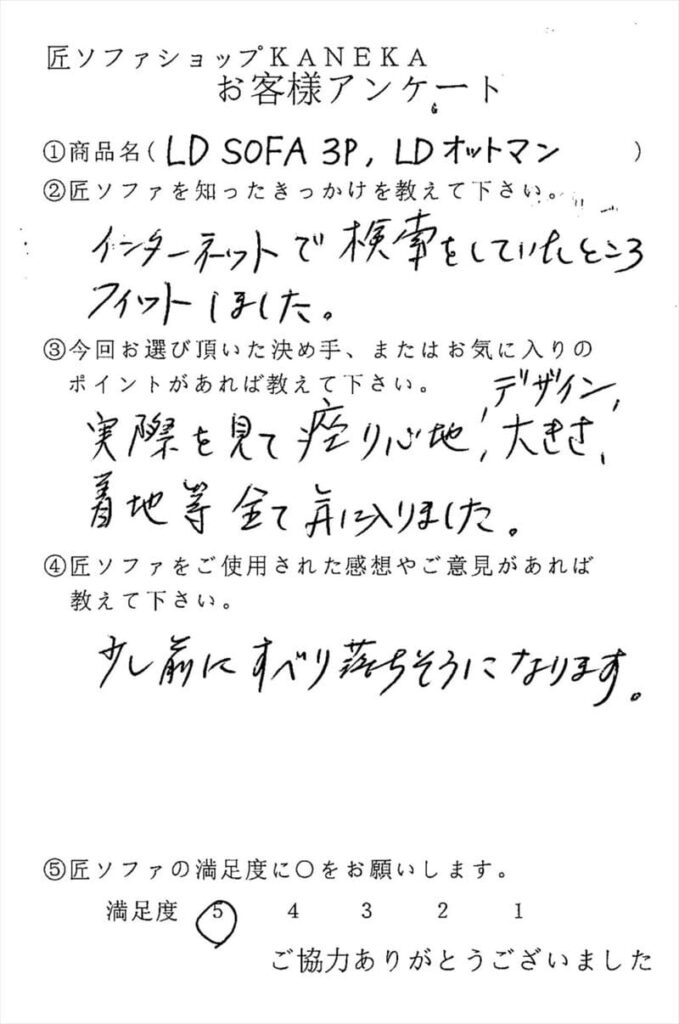 匠ソファショップKANEKA
お客様アンケート
①商品名( LD SOFA 3P, LDオットマン )
②匠ソファを知ったきっかけを教えて下さい。
インターネットで検索をしていたところ
フィットしました。
③今回お選び頂いた決め手、またはお気に入りの
ポイントがあれば教えて下さい。
、デザイン、
実際を見て座り心地、大きさ、
着地等全て気に入りました。
④匠ソファをご使用された感想やご意見があれば
教えて下さい。
少し前にすべり落ちそうになります。
⑤匠ソファの満足度に○をお願いします。
満足度 5 4 3 2 1
ご協力ありがとうございました